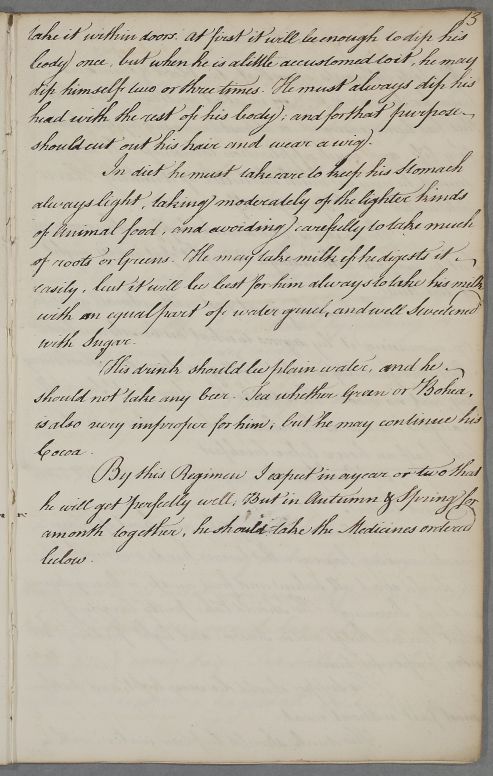 13
take it within doors. At first it will be enough to dip his
body once, but when he is a little accustomed to it, he may
dip himself two or three times. He must always dip his
head with the rest of his body; and for that purpose
should cut out his hair and wear a wig.
In diet he must take care to keep his Stomach
always light, taking moderately of the lighter kinds
of Animal food, and avoiding carefully to take much
of roots or Greens. He may take milk if he digests it
easily, but it will be best for him always to take his milk
with an equal part of water gruel, and well Sweetened
with Sugar.
His drink should be plain water, and he
should not take any beer. Tea whether Green or Bohea,
is also very improper for him; but he may continue his
Cocoa.
By this Regimen I expect in a year or two that
he will get perfectly well; But in Autumn & Spring for
a month together, he should take the Medicines ordered
below.